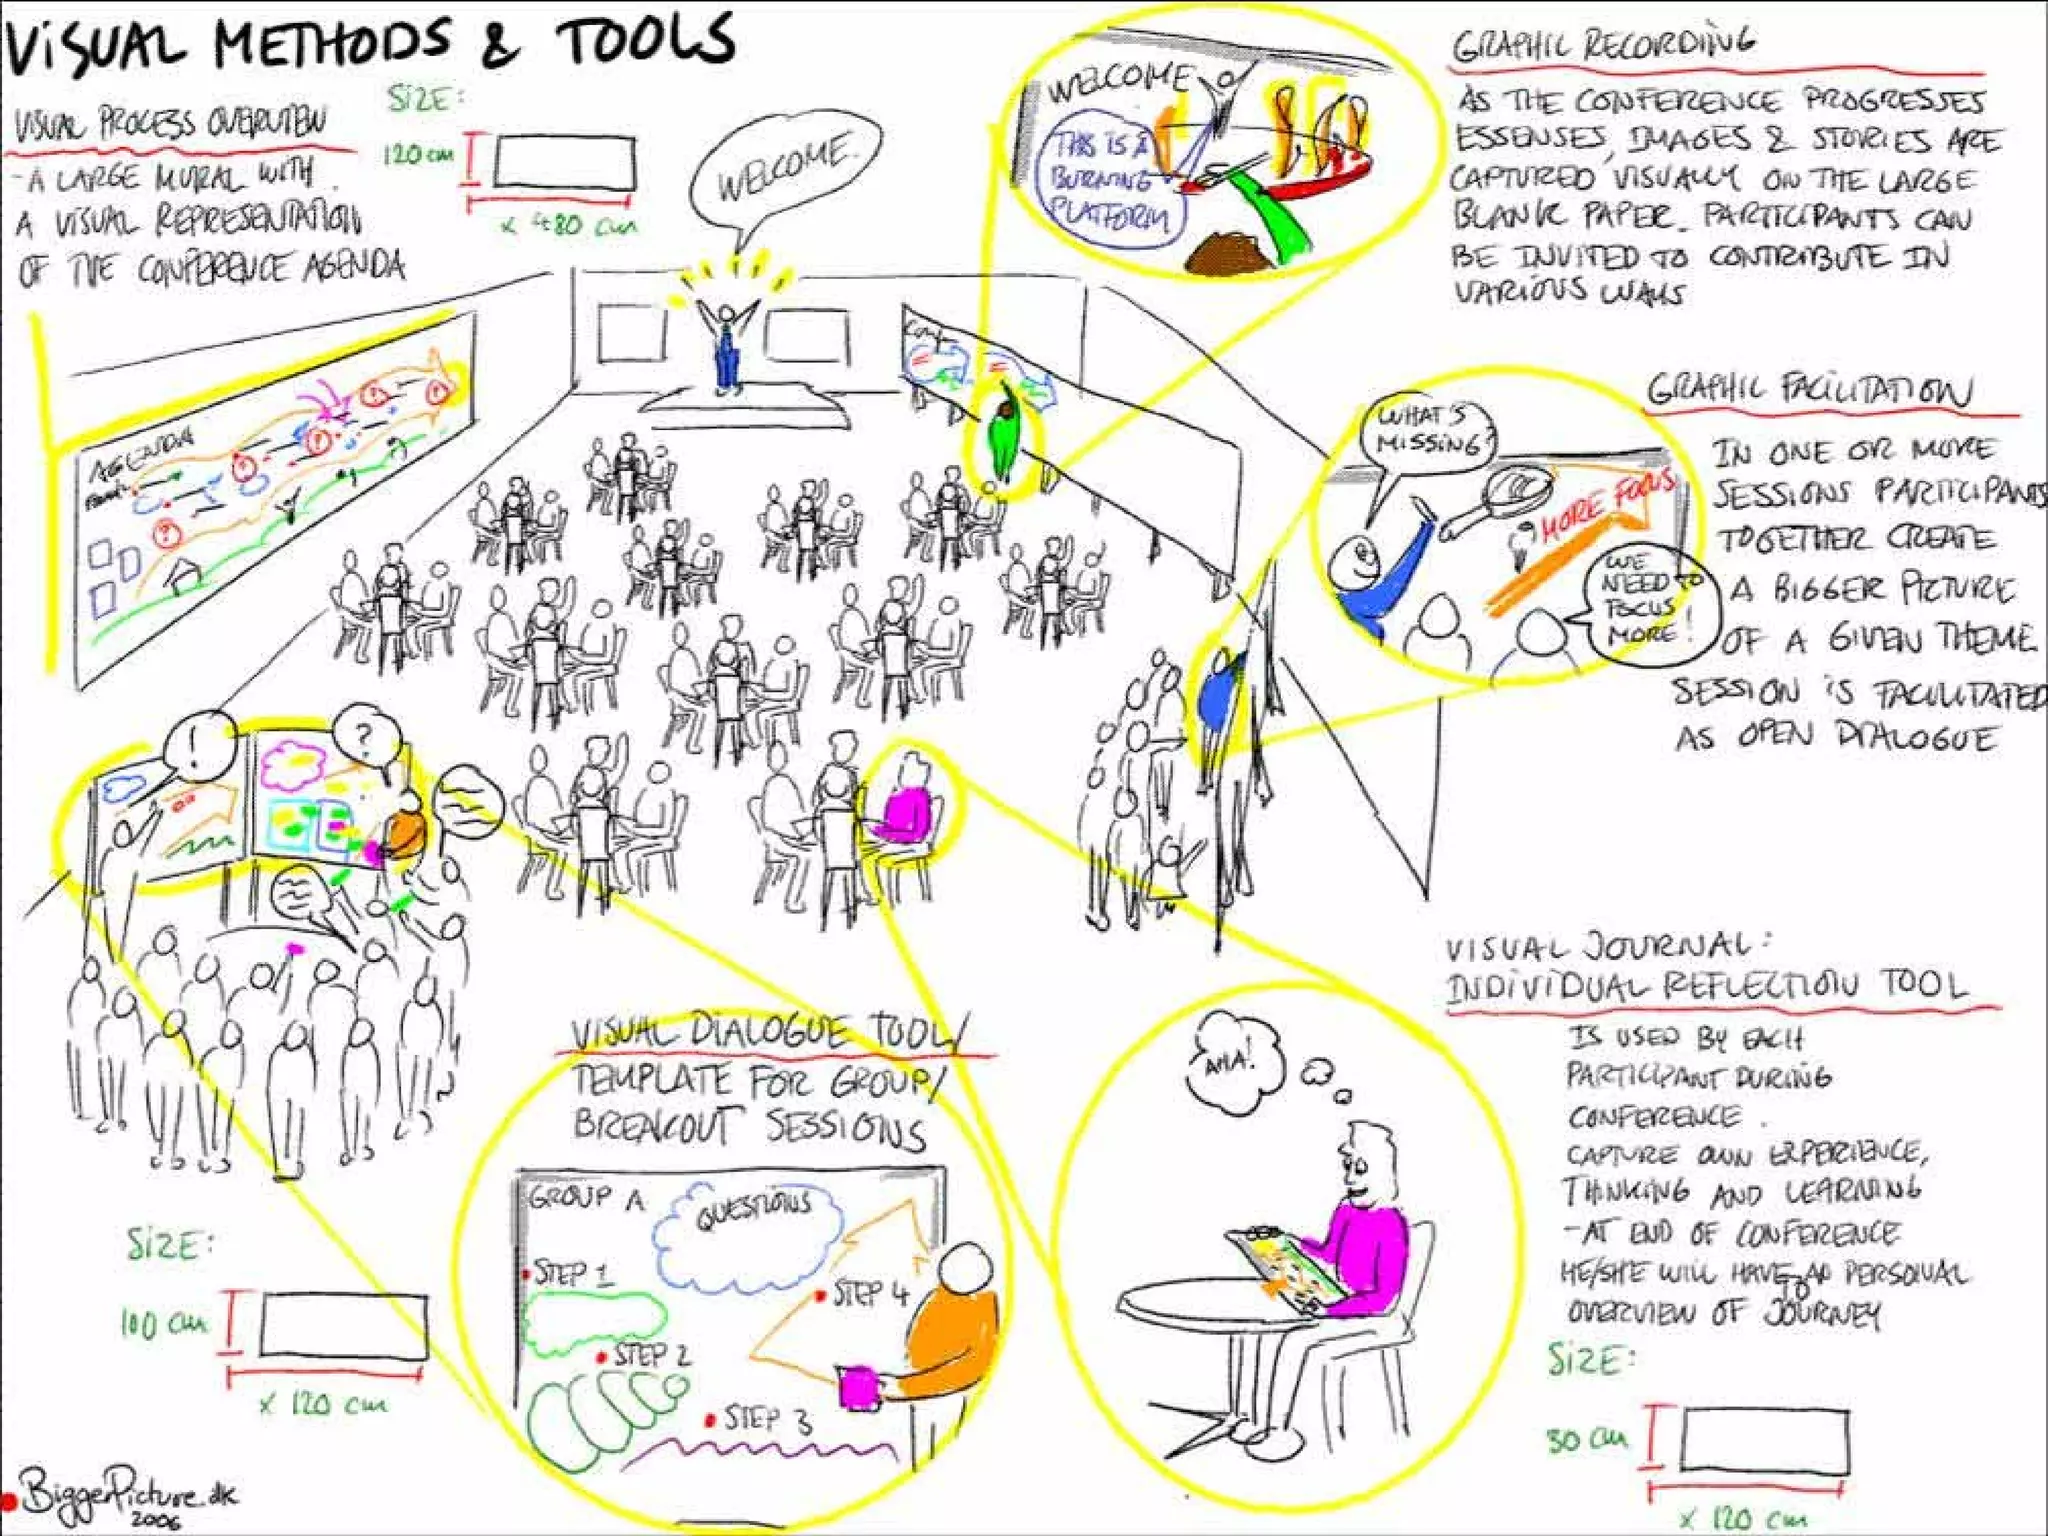 VISUAL METHODS & TOOLS
VISUAL PROCESS OVERVIEW
- A LARGE MURAL WITH
A VISUAL REPRESENTATION
OF THE CONFERENCE AGENDA
SIZE:
120 cm
x 480 cm
WELCOME.
WELCOME
THIS IS A
BURNING
PLATFORM
GRAPHIC RECORDING
AS THE CONFERENCE PROGRESSES
ESSENSES, IMAGES & STORIES ARE
CAPTURED VISUALLY ON THE LARGE
BLANK PAPER. PARTICIPANTS CAN
BE INVITED TO CONTRIBUTE IN
VARIOUS WAYS
GRAPHIC FACILITATION
IN ONE OR MORE
SESSIONS PARTICIPANTS
TOGETHER CREATE
A BIGGER PICTURE
OF A GIVEN THEME
SESSION IS FACILITATED
AS OPEN DIALOGUE
WHAT'S
MISSING?
MORE FOCUS
WE
NEED TO
FOCUS
MORE!
AGENDA
?
?
?
?
?
!
?
VISUAL DIALOGUE TOOL/
TEMPLATE FOR GROUP/
BREAKOUT SESSIONS
GROUP A
QUESTIONS
STEP 1
STEP 2
STEP 3
STEP 4
AHA!
VISUAL JOURNAL:
INDIVIDUAL REFLECTION TOOL
IS USED BY EACH
PARTICIPANT DURING
CONFERENCE.
CAPTURE OWN EXPERIENCE,
THINKING AND LEARNING
- AT END OF CONFERENCE
HE/SHE WILL HAVE PERSONAL
OVERVIEW OF JOURNEY
SIZE:
30 cm
x 120 cm
SIZE:
100 cm
x 120 cm
BiggerPicture.dk
2006